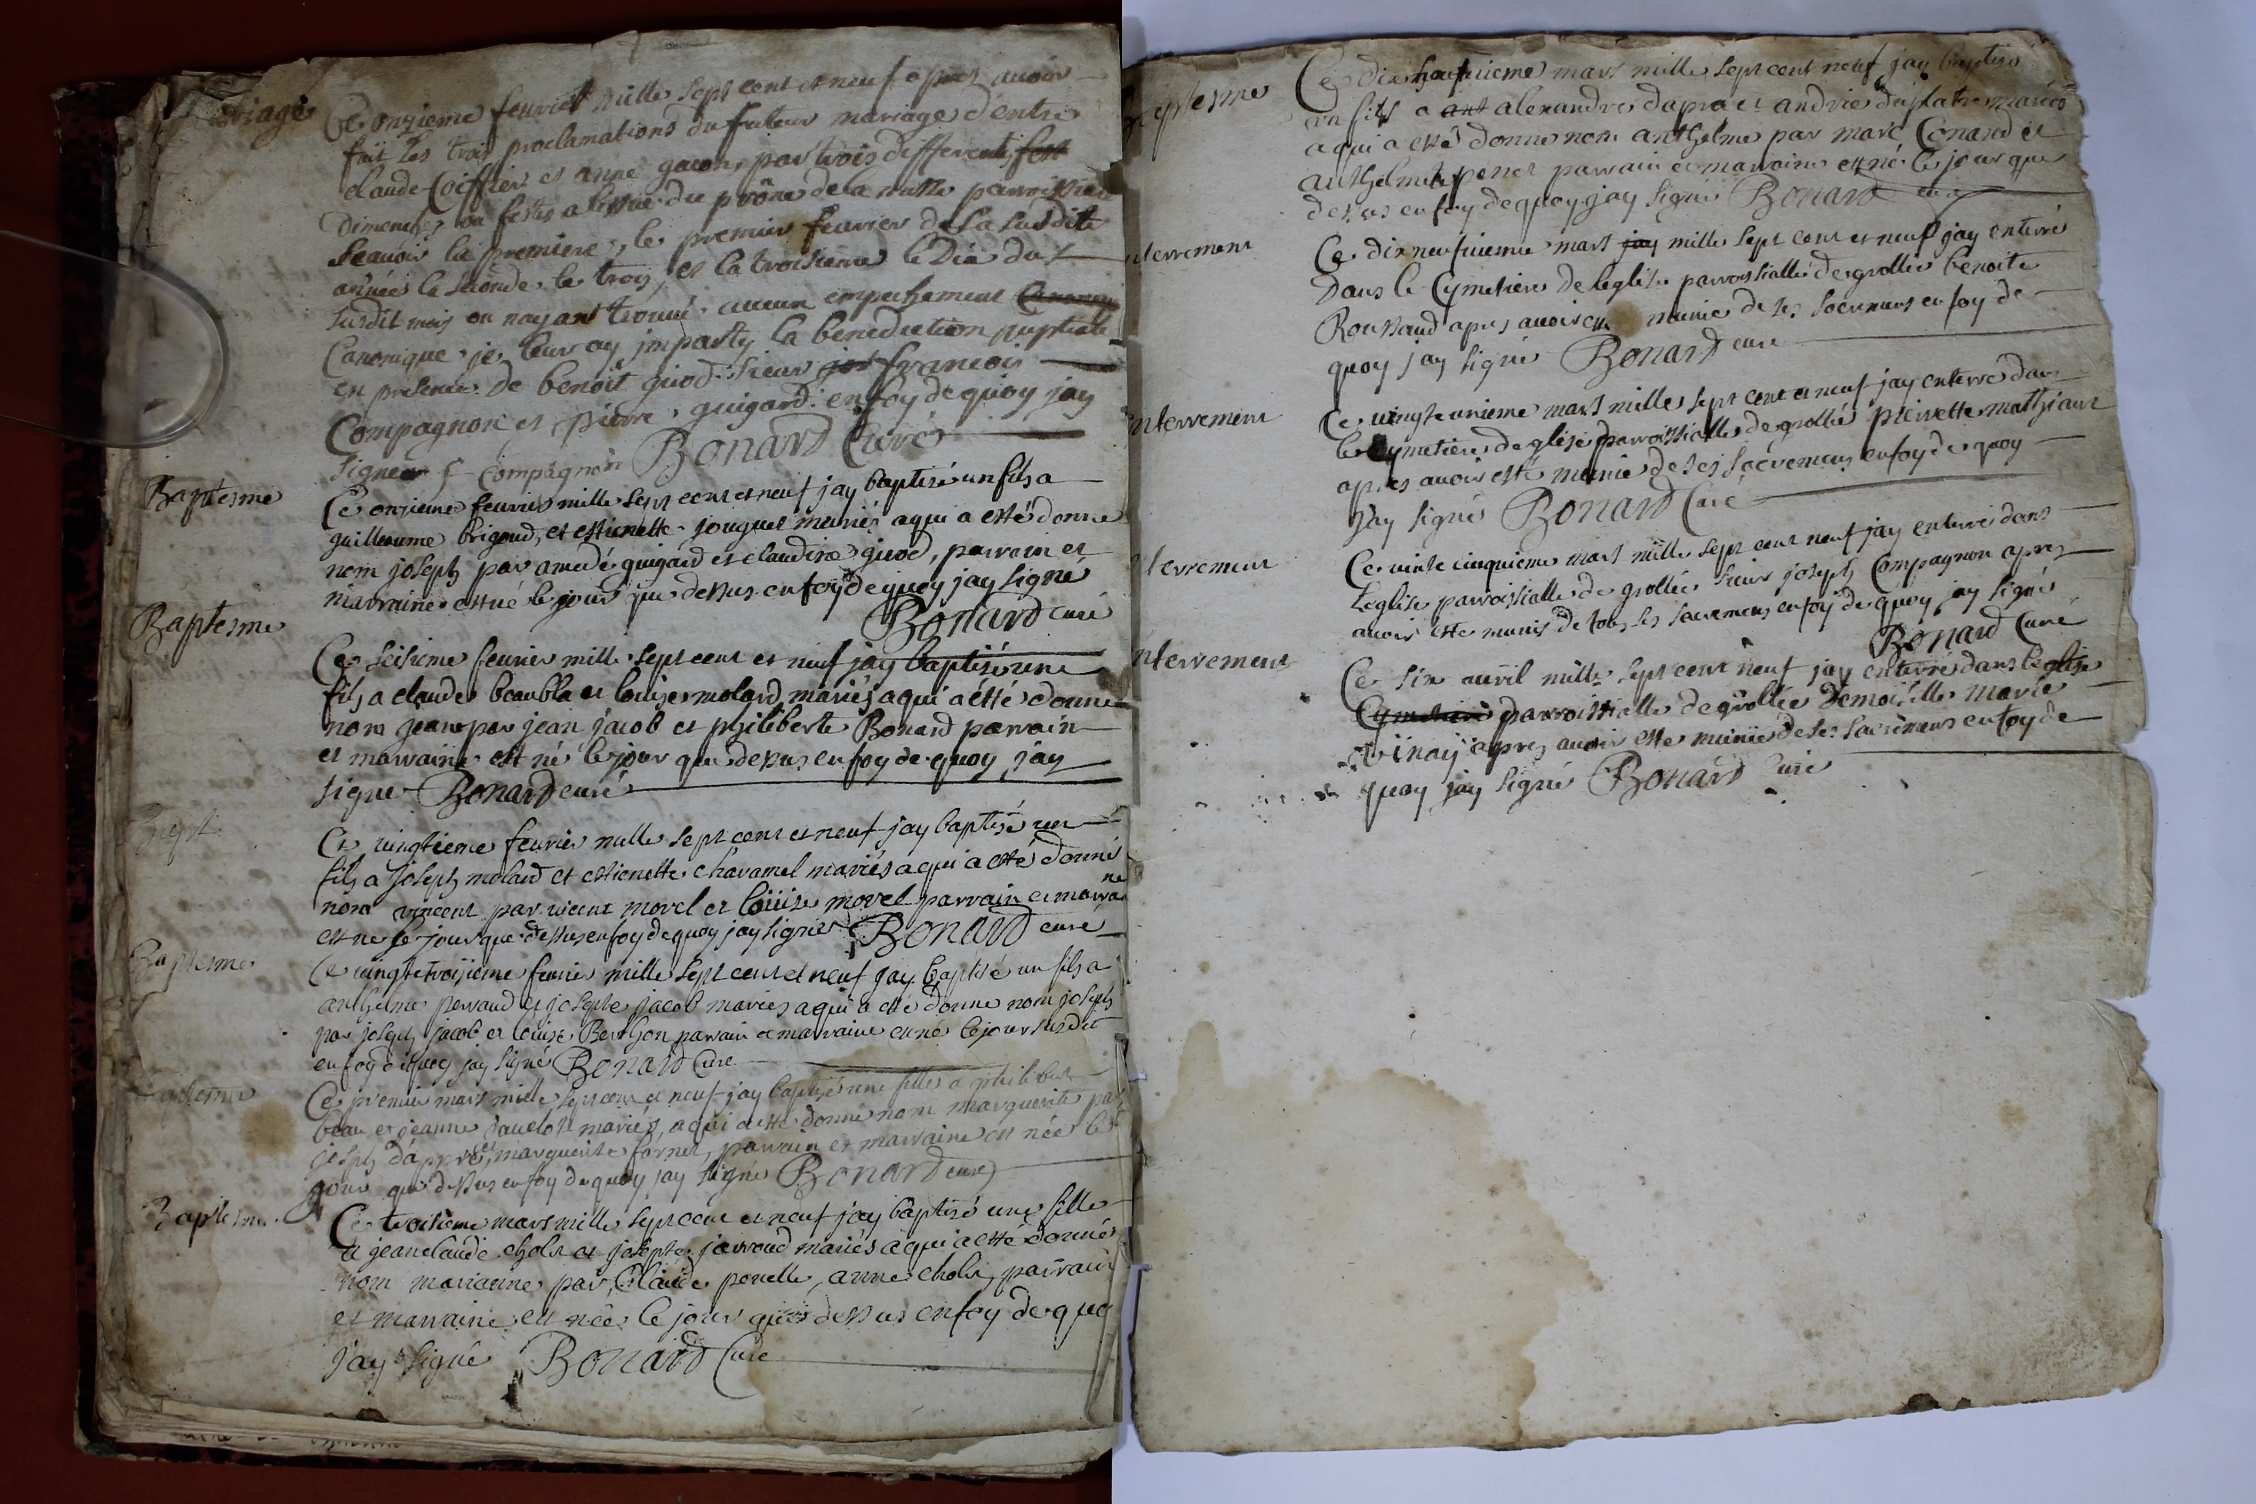 Ce onzieme feurier mille sept cent et neuf apres auoir
fait les trois proclamations du futeur mariage d'entre
claude Coiffier et anne gacon, par trois differents fest
Dimenches ou festes a lissue du prône de la messe parroissialle
scauoir la premiere, le premier feurier de la susdite
année la séconde le trois, et la troisieme le Dix dus
susdit mois ou nayant trouué aucun empechement Canoni
Canonique je leur ay imparty la benediction nuptiale
en presence de benoit guod sieur francois
Compagnon et pierre guigard en foy de quoy jay
signé f Compagnon Bonard Curé
Baptesme
Ce onzieme feurier mille sept cent et neuf jay baptisé un fils a
guilleaume brigoud, et estienette jouguet mariés a qui a esté donne
nom joseph par amedé guigard et claudine guod, parrain et
marraine est né le jour que dessus en foy de quoy jay signé
Bonard curé
Baptesme
Ce seisieme feurier mille sept cent et neuf jay baptisé une
fils a claude beaubla et louise molard mariés a qui a esté donné
nom jean par jean jacob et philiberte Bonard parrain
et marraine est né le jour que dessus en foy de quoy jay
signe Bonard curé
Bapt
Ce vingtieme feurier mille sept cent et neuf jay baptisé un
fils a joseph molard et estienette charamel mariés a qui a esté donné
nom vincent par vicent morel et louise morel parrain et marrai
ne
est ne le jour que dessus en foy de quoy jay signé Bonard curé
Baptesme
Ce vingt troisieme feurier mille sept cent et neuf jay baptisé un fils a
anthelme perraud et josepte jacob mariés a qui a esté donne nom joseph
par joseph jacob et louise Berthon parrain et marraine est né le jour susdit
en foy de quoy jay signé Bonard Curé
Baptesme
Ce premier mars mille sept cent et neuf jay baptisé une fille a philibert
beau et jeanne mariés, a qui a esté donné nom marguerite par
joseph et marguerite fornet, parrain et marraine est née le
jour que dessus en foy de quoy jay signé Bonard curé
Baptesme
Ce troisieme mars mille sept cent et neuf jay baptisé une fille
a jean claude cholat et josepte jarroud mariés a qui a esté donné
nom marianne par Claude penelle, anne cholat, parrain
et marraine est née le jour que dessus en foy de quo
jay signé Bonard Curé
Ce dix mars mille sept cent neuf jay baptisé
un fils a ant alexandre dapra et andrie duplatre mariés
a qui a esté donné nom anthelme par marc Conard et
anthelmete penet parrain et marraine est né le jour que
dessus en foy de quoy jay signé Bonard curé
Ce dix neufuieme mars jay mille sept cent et neuf jay enterré
Dans le Cymetiere de leglise parroissialle de grollée benoite
Roussaud apres auoir este munie de ses sacremens en foy de
quoy jay signé Bonard curé
nterrement
Ce vingt unieme mars mille sept cent et neuf jay enterré dans
le Cymetiere de glise parroissialle de grollée pierrette mathiant
apres auoir esté munie de ses sacremens en foy de quoy
jay signé Bonard Curé
terrement
Ce vinte cinquieme mars mille sept cent neuf jay enterré dans
leglise parroissialle de grollée sieur joseph Compagnon apres
auoir esté munis de tous ses sacremens en foy de quoy jay signé
Bonard Curé
nterrement
Ce six auril mille sept cent neuf jay enterré dans leglise
Cymetiere parroissialle de grollée Demoiselle marie
apres auoir esté munie de ses sacremens en foy de
quoy jay signé Bonard Curé